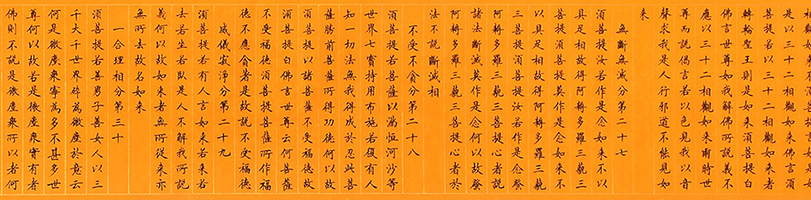 是以三十二相觀如來佛言須
菩提若以三十二相觀如來者
轉輪聖王則是如來須菩提白
佛言世尊如我解佛所說義不
應以三十二相觀如來爾時世
尊而說偈言若以色見我以音
聲求我是人行邪道不能見如
來
無斷無滅分第二十七
須菩提汝若作是念如來不以
具足相故得阿耨多羅三藐三
菩提須菩提莫作是念如來不
以具足相故得阿耨多羅三藐
三菩提須菩提汝若作是念發
阿耨多羅三藐三菩提心者說
諸法斷滅莫作是念何以故發
阿耨多羅三藐三菩提心者於
法不說斷滅相
不受不貪分第二十八
須菩提若菩薩以滿恒河沙等
世界七寶持用布施若復有人
知一切法無我得成於忍此菩
薩勝前菩薩所得功德何以故
須菩提以諸菩薩不受福德故
須菩提白佛言世尊云何菩薩
不受福德須菩提菩薩所作福
德不應貪著是故說不受福德
威儀寂淨分第二十九
須菩提若有人言如來若來若
去若坐若臥是人不解我所說
義何以故如來者無所從來亦
無所去故名如來
一合理相分第三十
須菩提若善男子善女人以三
千大千世界碎為微塵於意云
何是微塵眾寧為多不甚多世
尊何以故若是微塵眾實有者
佛則不說是微塵眾所以者何